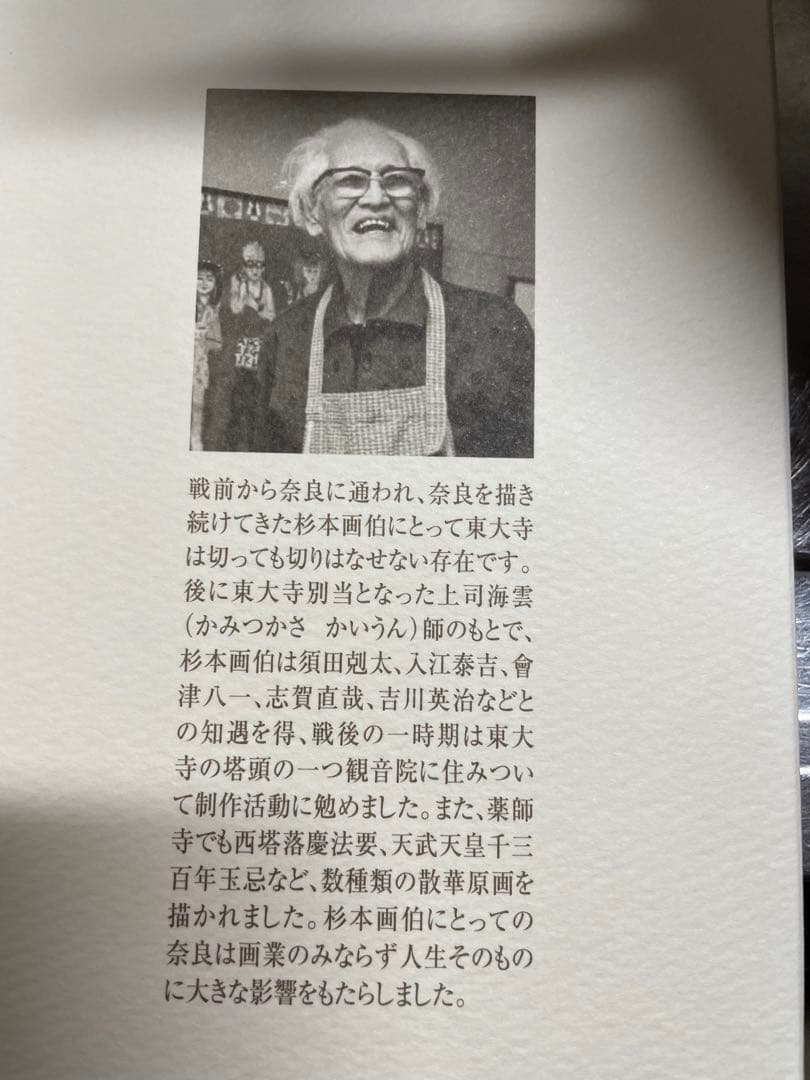 戦前から奈良に通われ、奈良を描き
続けてきた杉本画伯にとって東大寺
は切っても切りはなせない存在です。
後に東大寺別当となった上司海雲
（かみつかさ　かいうん）師のもとで、
杉本画伯は須田剋太、入江泰吉、會
津八一、志賀直哉、吉川英治などと
の知遇を得、戦後の一時期は東大
寺の塔頭の一つ観音院に住みつい
て制作活動に勉めました。また、薬師
寺でも西塔落慶法要、天武天皇千三
百年玉忌など、数種類の散華原画を
描かれました。杉本画伯にとっての
奈良は画業のみならず人生そのもの
に大きな影響をもたらしました。